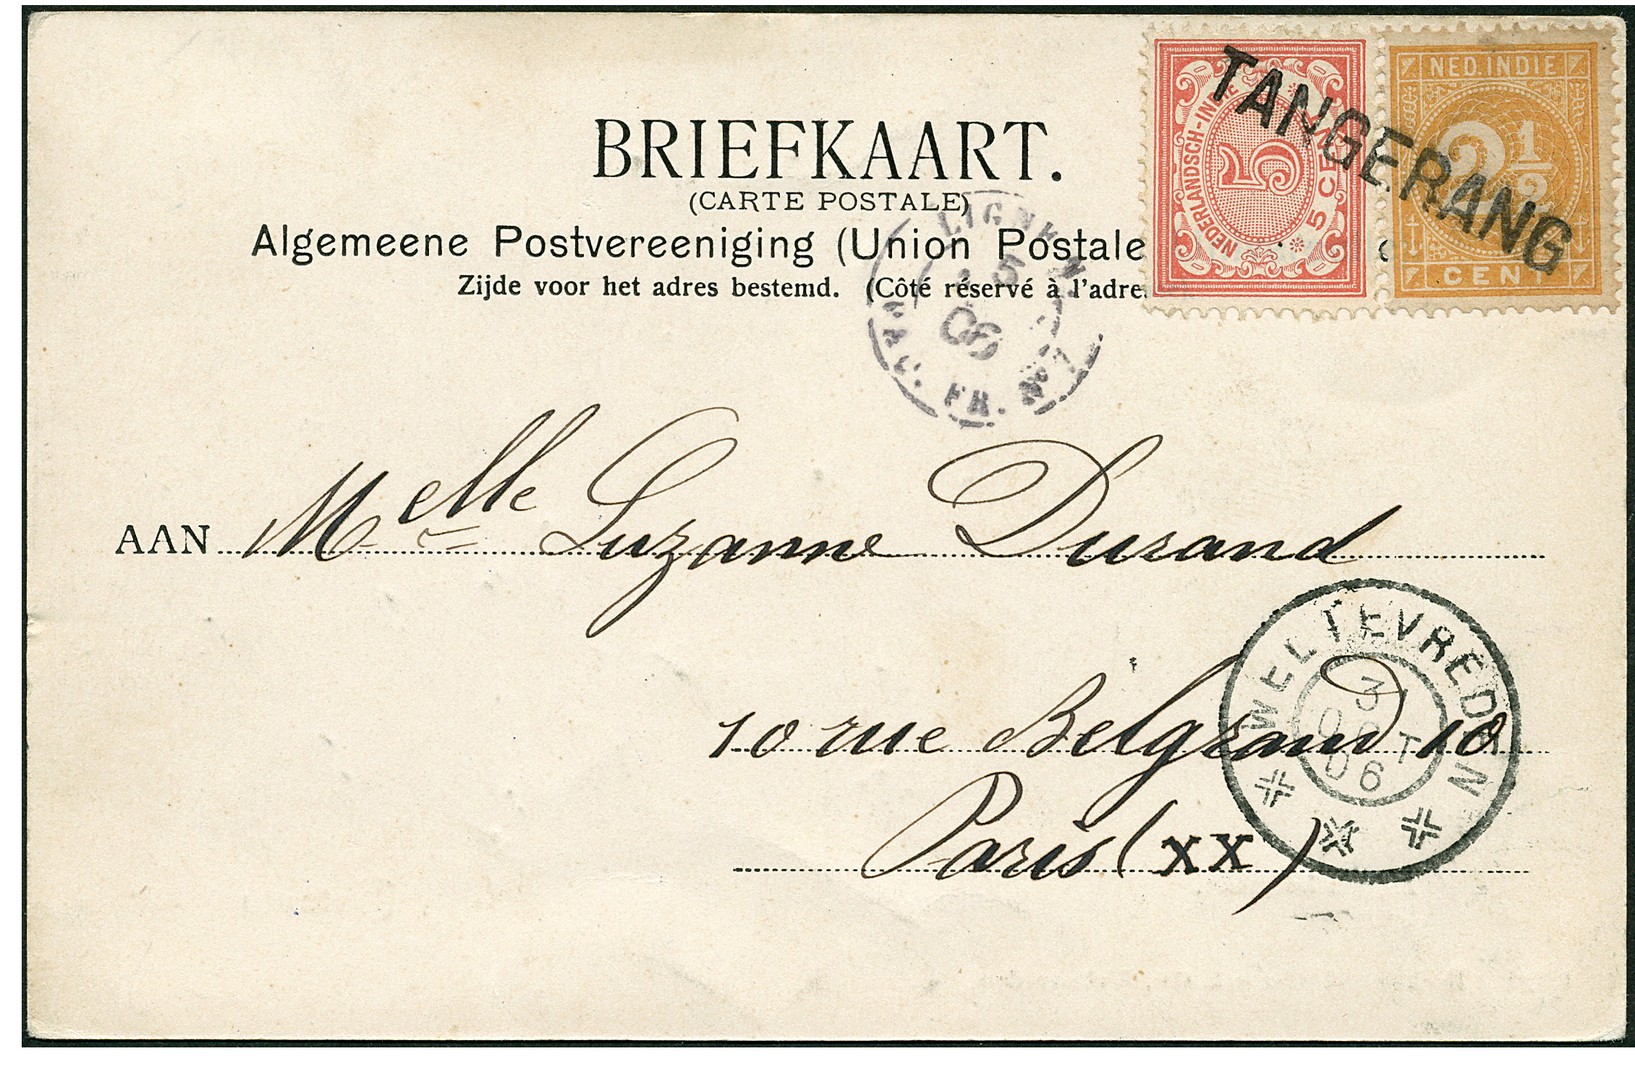 BRIEFKAART.
(CARTE POSTALE)
Algemeene Postvereeniging (Union Postale
Zijde voor het adres bestemd. (Côté réservé à l'adre
NEDERLANDSCH-INDIE
5
5 CENT
NED. INDIE
2½
CENT
TANGERANG
LIGNE N
06
FR. Nº
AAN Melle Suzanne Durand
10 rue Belgrand 10
Paris (XX)
WELTEVREDEN
3
OCT
06